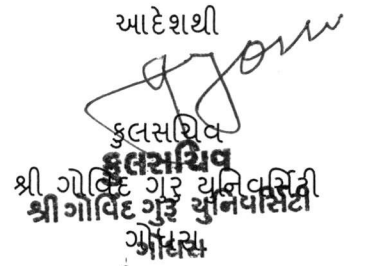 આદેશથી
કુલસચિવ
કુલસચિવ
શ્રી ગોવિંદ ગુરુ યુનિવર્સિટી
શ્રી ગોવિંદ ગુરૂ યુનિવર્સિટી
ગોધરા
ગોધરા